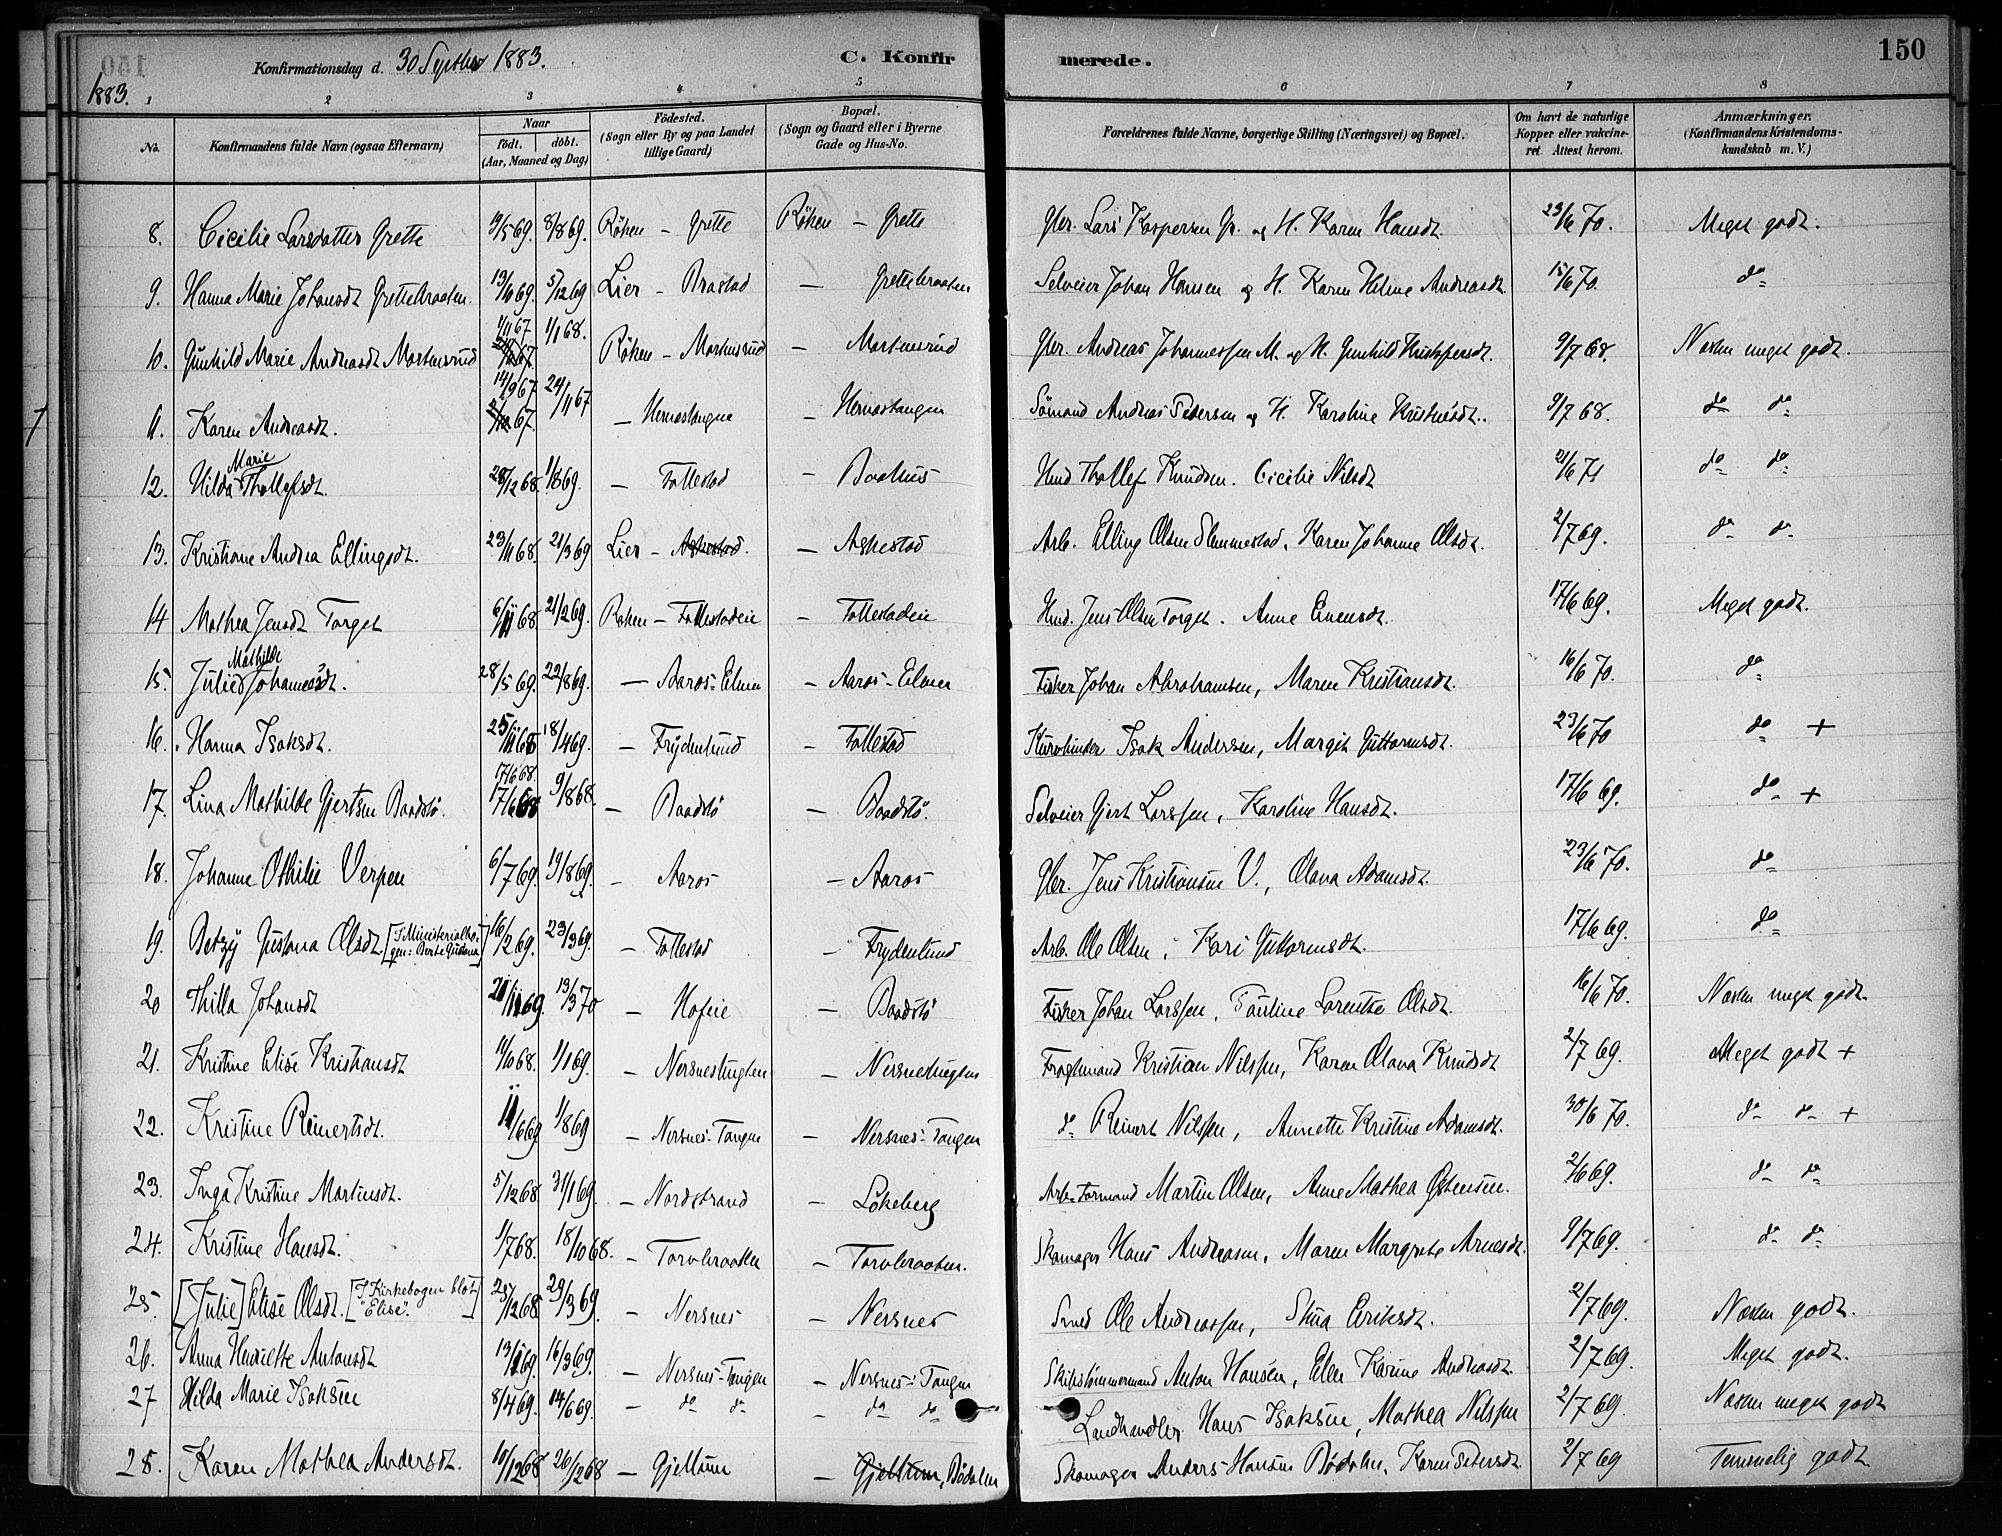 Konfirmationsdag d. 30 Septber 1883. C. Konfirmerede. 150
1883.
1 2 3 4 5 6 7 8
No. Konfirmandens fulde Navn (ogsaa Efternavn) Naar født. døbt. (Aar, Maaned og Dag) Födested. (Sogn eller By og paa Landet tillige Gaard) Bopæl. (Sogn og Gaard eller i Byerne Gade og Hus-No. Forældrenes fulde Navne, borgerlige Stilling (Næringsvei) og Bopæl. Om havt de naturlige Kopper eller vakcineret. Attest herom. Anmærkninger. (Konfirmandens Kristendomskundskab m. V.)
8. Cicilie Larsdatter Grette 19/5 69. 8/8 69. Röken - Grette Röken - Grette Gbr. Lars Kaspersen Gr. og H. Karen Hansdt. 23/6 70. Meget godt.
9. Hanna Marie Johansdt Grettebraaten. 19/10 69. 5/12 69 Lier - Brastad - Grettebraaten Selveier Johan Hansen og H. Karen Heline Andreasdt. 15/6 70. do
10. Gunhild Marie Andreasdt Morkusrud 1/11 67 1/1 68. Röken - Morkusrud - Morkusrud Gbr. Andreas Johannessen M. og H. Gunhild Kristofersdt. 9/7 68. Næsten meget godt.
11. Karen Andreasdt. 14/9 67 24/11 67 - Hernestangen - Hernestangen Sömand Andreas Pedersen og H. Karoline Kristiansdt. 9/7 68. do do
12. Hilda Marie Thollefsdt. 28/12 68. 1/8 69. - Follestad - Baahus Hmd Thollef Knudsen. Cicilie Nilsdt 21/6 71 do do
13. Kristiane Andrea Ellingsdt. 23/11 68. 21/3 69 Lier - Askestad. - Askestad Arb. Elling Olsen Slemmestad, Karen Johanne Olsdt. 2/7 69. do do
14 Mathea Jensdt Torget 6/11 68 21/2 69. Röken - Follestadeie - Follestadeie Hmd. Jens Olsen Torget. Anne Evensdt. 17/6 69. Meget godt.
15. Julie Mathilde Johannesdt. 28/5 69. 22/8 69. - Aaros-Eilnen - Aaros-Eilnen Fisker Johan Abrahamsen, Maren Kristiansdt. 16/6 70. do
16. Hanna Isaksdt. 25/11 68 18/4 69. - Frydenlund - Follestad Kurvbinder Isak Andersen, Margit Guttormsdt. 23/6 70 do +
17. Lina Mathilde Gjertsen Baadstö. 17/6 68. 17/6 68 9/8 68. - Baadstö - Baadstö. Selveier Gjert Larssen, Karoline Hansdt. 17/6 69. do +
18. Johanne Othilie Verpen 6/7 69. 19/8 69. - Aaros - Aaros Gbr. Jens Kristiansen V., Olava Adamsdt. 23/6 70. do
19. Betzy Gustava Olsdt. [I Ministerialbogen: Berte Gustava] 16/2 69. 23/3 69. - Follestad - Frydenlund Arb. Ole Olsen, Kari Guttormsdt. 17/6 69. do
20 Thilla Johansdt 21/11 69. 13/3 70 - Hofeie - Baadstö Fisker Johan Larssen, Pauline Lorentse Olsdt. 16/6 70. Næsten meget godt.
21. Kristine Elise Kristiansdt 11/10 68. 1/1 69. - Nersnestangen - Nersnestangen Fragtmand Kristian Nilssen, Karen Olava Knudsdt 2/7 69. Meget godt +
22. Kristine Reinertsdt. 11/6 69 1/8 69 - Nersnes-Tangen - Nersnes-Tangen do Reinert Nilssen, Annette Kristine Adamsdt. 30/6 70. do do +
23. Inga Kristine Martinsdt. 5/12 68. 31/1 69. - Nordstrand - Lökeberg Arb-Formand Martin Olsen, Anne Mathea Östensen. 2/6 69. do do
24. Kristine Hansdt. 1/7 68. 18/10 68. - Torvbraaten - Torvbraaten. Skomager Hans Andreasen, Maren Margrete Arnesdt. 9/7 69. do do
25. [Julie] Elise Olsdt. [I Kirkebogen blot "Elise".] 25/12 68 29/3 69. - Nersnes - Nersnes Smed Ole Andreassen, Stina Eriksdt. 2/7 69. Næsten godt.
26. Anna Henriette Antonsdt 13/1 69. 16/3 69. - Nersnes-Tangen - Nersnes-Tangen Skibstömmermand Anton Hansen, Ellen Karine Andreasdt. 2/7 69. Meget godt.
27 Hilda Marie Isaksen 8/4 69. 14/6 69. - do do - do do Landhandler Hans Isaksen, Mathea Nilssen 2/7 69. Næsten meget godt
28. Karen Mathea Andersdt. 10/12 68 26/12 68 - Gjellum - Gjellum, Bödalen Skomager Anders Hansen Bödalen, Karen Petersdt. 2/7 69 Temmelig godt